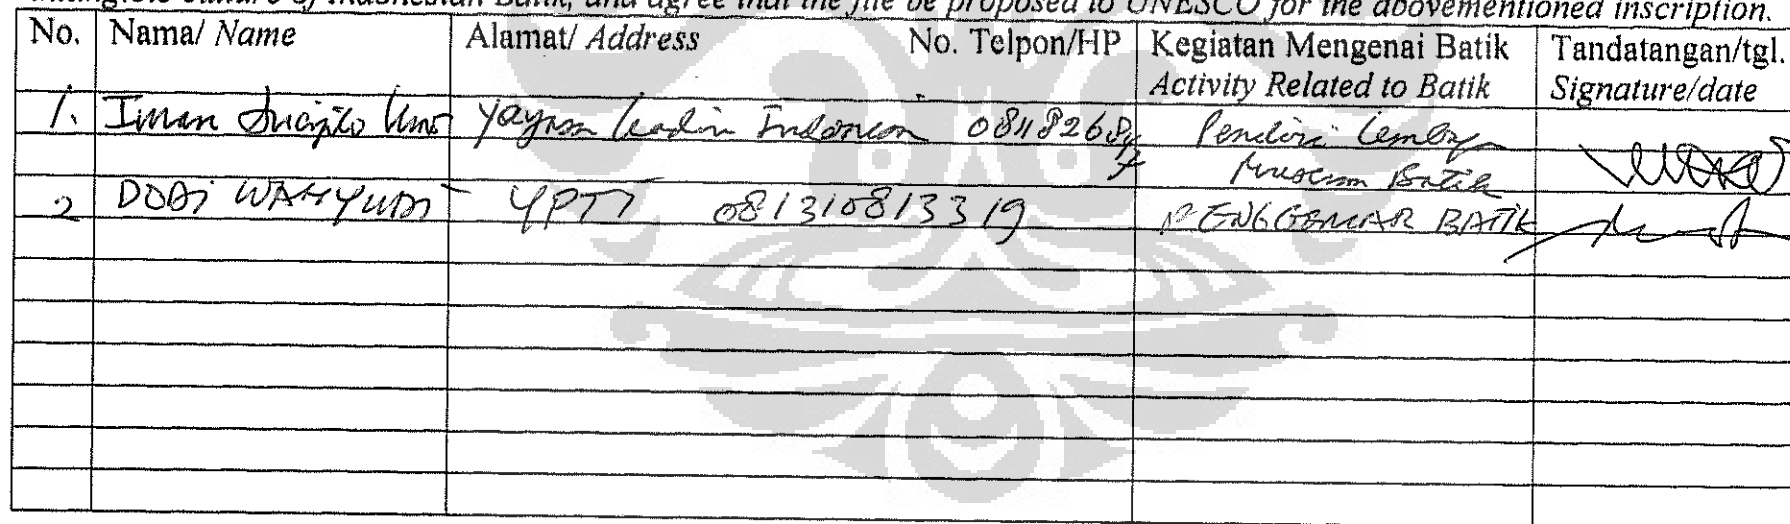 intangible culture of Indonesian Batik, and agree that the file be proposed to UNESCO for the abovementioned inscription.
No. Nama/ Name Alamat/ Address No. Telpon/HP Kegiatan Mengenai Batik Tandatangan/tgl.
Activity Related to Batik Signature/date
1. Iman Sucipto Umar Yayasan Kadin Indonesia Pendiri
Museum Batik
2 DODI WAHYUDI YPTT 081310813319 PENGGEMAR BATIK